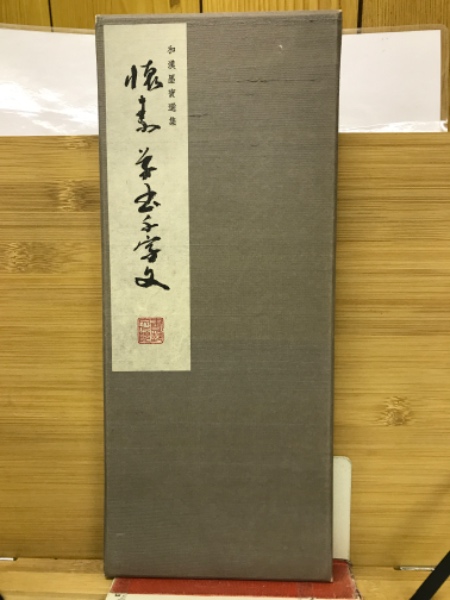 和漢墨寳選集
懐素 草書千字文